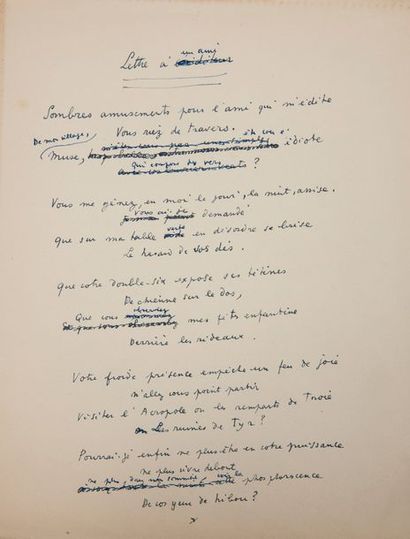 un ami
Lettre à
Sombres amusements pour l'ami qui m'édite
Vous riez de travers.
De mon village,
Muse, idiote
qui coupes tes vers
?
Vous me gênez, en moi le jour, la nuit, assise.
Vous ai-je demandé
Que sur ma table verte en désordre se brise
Le hasard de vos dés.
Que votre double-six expose ses tétines
De chienne sur le dos,
Que vous observiez mes fêtes enfantines
Derrière les rideaux.
Votre froide présence empêche un feu de joie
N'allez vous point partir
Visiter l'Acropole ou les remparts de Troie
Les ruines de Tyr?
Pourrai-je enfin ne plus être en votre puissance
ne plus vivre debout
ne plus, dans mon sommeil, voir la phosphorescence
De vos yeux de hibou?